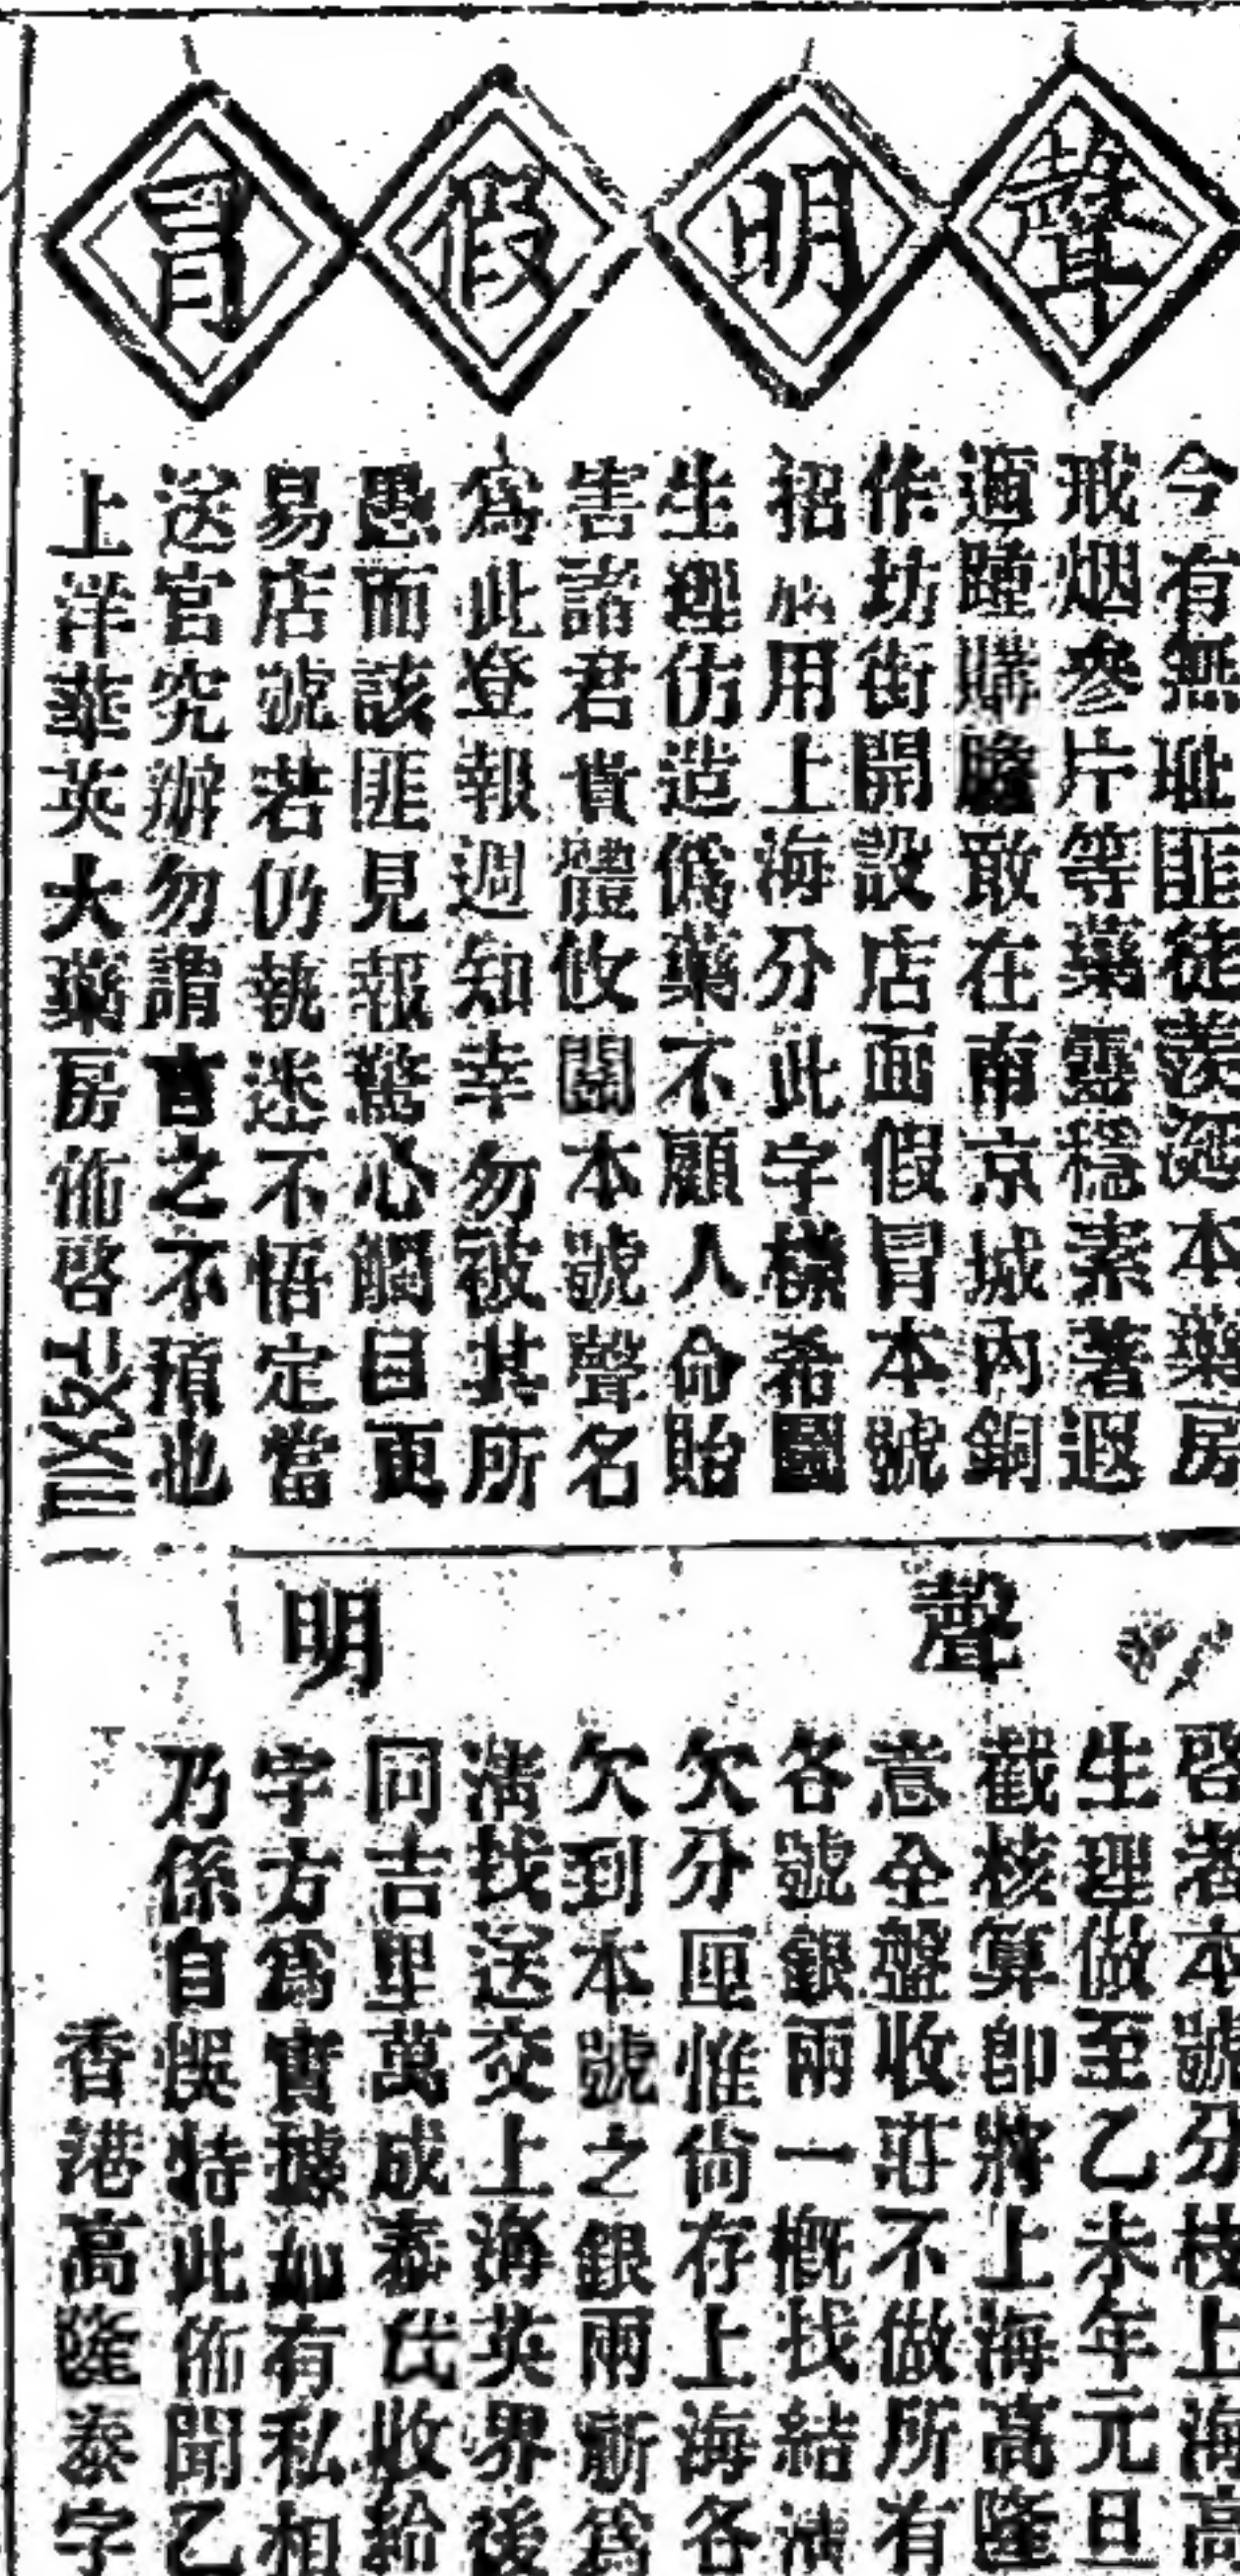 聲明假冒
今有無耻匪徒羨涎本藥房
戒烟參片等藥靈穩素著遐
邇踵購膽敢在南京城內銅
作坊街開設店面假冒本號
招用上海分此字樣希圖
生理仿造偽藥不顧人命貽
害諸君貴體攸關本號聲名
為此登報週知幸勿被其所
愚而該匪見報驚心觸目更
易店號若仍執迷不悟定當
送官究辦勿謂言之不預也
上洋華英大藥房佈啓
聲明
啓者本號分枝上海高
生理做至乙未年元旦
截核算卽將上海高隆
意全盤收莊不做所有
各號銀兩一概找結清
欠分匣惟尙存上海各
欠到本號之銀兩嶄為
淸找送交上海英界後
同吉里萬成泰代收給
字方為實據如有私相
乃係自悞特此佈聞乙
香港高隆泰字